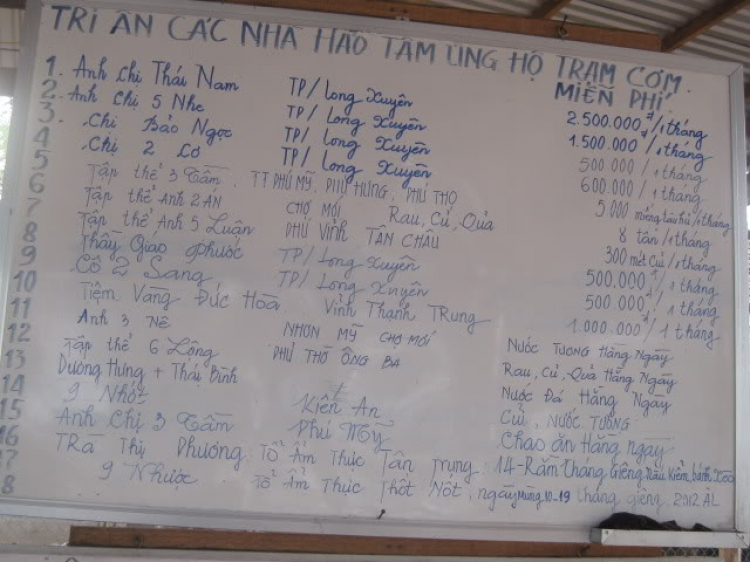 TRI ÂN CÁC NHÀ HẢO TÂM ỦNG HỘ TRẠM CƠM
MIỄN PHÍ
1. Anh chị Thái Nam TP/Long Xuyên 2.500.000đ/1tháng
2. Anh chị 5 Nhe TP/Long Xuyên 1.500.000đ/1tháng
3. Chị Bảo Ngọc TP/Long Xuyên 500.000/1tháng
4 Chị 2 Cơ TP/Long Xuyên 600.000/1tháng
5 Tập thể 3 Tâm. TT PHÚ MỸ. PHÚ HƯNG. PHÚ THỌ 5 000 miếng tàu hủ/1tháng
6 Tập thể Anh 2 ÁN CHỢ MỚI Rau, Củ, Quả 8 tấn/1tháng
7 Tập thể Anh 5 Luận PHÚ VĨNH TÂN CHÂU 300 mét Củi/1tháng
8 Thầy Giáo Phước TP/Long Xuyên 500.000/1tháng
9 Cô 2 Sang TP/Long Xuyên 500 000/1 tháng
10 Tiệm Vàng Đức Hòa Vĩnh Thạnh TRung 1.000.000/1 tháng
11 Anh 3 Nê NHƠN MỸ CHỢ MỚI NƯỚC TƯƠNG Hằng Ngày
12 Tập thể 6 Lộng PHÚ THỌ ÔNG BA Rau, Củ, Quả Hằng Ngày
13 Dương Hưng + Thái Bình Nước Đá Hằng Ngày
14 9 Nhớt Kiến An Củi, NƯỚC TƯƠNG
15 Anh Chị 3 Tâm Phú Mỹ Chao ăn Hằng ngày
16 TRÀ Thị Phương Tổ Ẩm Thực Tân Trung 14-Rằm Tháng Giêng Nấu Kiểm, bánh Xèo
17 9 Nhược Tổ Ẩm Thực Thốt Nốt, ngày Mùng 10-19 tháng giêng 2012 AL
8